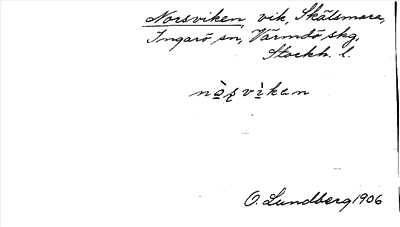 Norsviken, vik, Skälsmara,
Ingarö sn, Värmdö skg,
Stockh. l.
nò̲ʂvì̲ken
O. Lundberg 1906